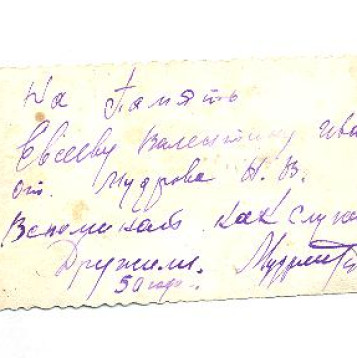 На Память
Евсееву Валентину Ива
от Мудрова Н. В.
Вспоминай как служ
Дружили.
50 год.